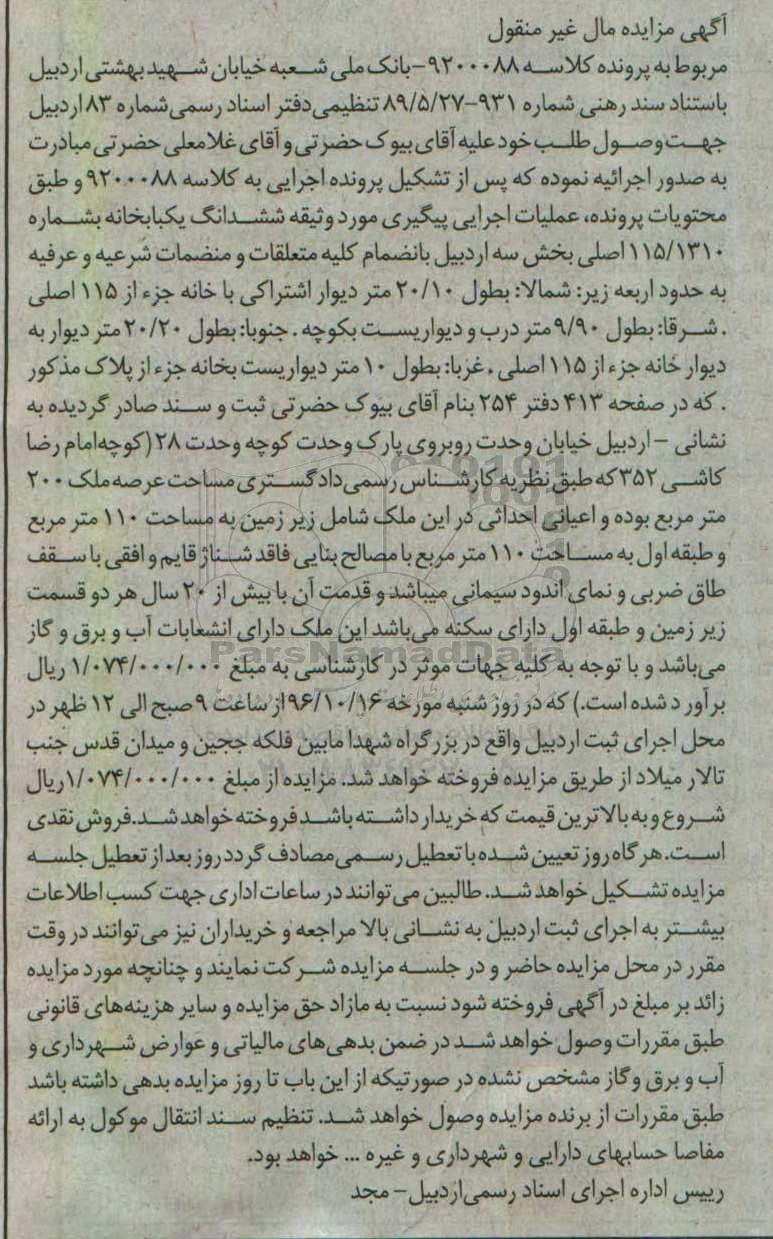 آگهی مزایده مال غیر منقول
مربوط به پرونده کلاسه ۹۲۰۰۰۸۸-بانک ملی شعبه خیابان شهید بهشتی اردبیل
باستناد سند رهنی شماره ۹۳۱-۸۹/۵/۲۷ تنظیمی دفتر اسناد رسمی شماره ۸۳ اردبیل
جهت وصول طلب خود علیه آقای بیوک حضرتی و آقای غلامعلی حضرتی مبادرت
به صدور اجرائیه نموده که پس از تشکیل پرونده اجرایی به کلاسه ۹۲۰۰۰۸۸ و طبق
محتویات پرونده، عملیات اجرایی پیگیری مورد وثیقه ششدانگ یکبابخانه بشماره
۱۱۵/۱۳۱۰ اصلی بخش سه اردبیل بانضمام کلیه متعلقات و منضمات شرعیه و عرفیه
به حدود اربعه زیر: شمالا: بطول ۲۰/۱۰ متر دیوار اشتراکی با خانه جزء از ۱۱۵ اصلی
. شرقا: بطول ۹/۹۰ متر درب و دیواریست بکوچه . جنوبا: بطول ۲۰/۲۰ متر دیوار به
دیوار خانه جزء از ۱۱۵ اصلی . غربا: بطول ۱۰ متر دیواریست بخانه جزء از پلاک مذکور
. که در صفحه ۴۱۳ دفتر ۲۵۴ بنام آقای بیوک حضرتی ثبت و سند صادر گردیده به
نشانی - اردبیل خیابان وحدت روبروی پارک وحدت کوچه وحدت ۲۸ (کوچه امام رضا
کاشی ۳۵۲ که طبق نظریه کارشناس رسمی دادگستری مساحت عرصه ملک ۲۰۰
متر مربع بوده و اعیانی احداثی در این ملک شامل زیر زمین به مساحت ۱۱۰ متر مربع
و طبقه اول به مساحت ۱۱۰ متر مربع با مصالح بنایی فاقد شناژ قایم و افقی با سقف
طاق ضربی و نمای اندود سیمانی میباشد و قدمت آن با بیش از ۲۰ سال هر دو قسمت
زیر زمین و طبقه اول دارای سکنه می‌باشد این ملک دارای انشعابات آب و برق و گاز
می‌باشد و با توجه به کلیه جهات موثر در کارشناسی به مبلغ ۱/۰۷۴/۰۰۰/۰۰۰ ریال
برآورد شده است.) که در روز شنبه مورخه ۹۶/۱۰/۱۶ از ساعت ۹ صبح الی ۱۲ ظهر در
محل اجرای ثبت اردبیل واقع در بزرگراه شهدا مابین فلکه ججین و میدان قدس جنب
تالار میلاد از طریق مزایده فروخته خواهد شد. مزایده از مبلغ ۱/۰۷۴/۰۰۰/۰۰۰ ریال
شروع و به بالاترین قیمت که خریدار داشته باشد فروخته خواهد شد.فروش نقدی
است. هر گاه روز تعیین شده با تعطیل رسمی مصادف گردد روز بعد از تعطیل جلسه
مزایده تشکیل خواهد شد. طالبین می‌توانند در ساعات اداری جهت کسب اطلاعات
بیشتر به اجرای ثبت اردبیل به نشانی بالا مراجعه و خریداران نیز می‌توانند در وقت
مقرر در محل مزایده حاضر و در جلسه مزایده شرکت نمایند و چنانچه مورد مزایده
زائد بر مبلغ در آگهی فروخته شود نسبت به مازاد حق مزایده و سایر هزینه‌های قانونی
طبق مقررات وصول خواهد شد در ضمن بدهی‌های مالیاتی و عوارض شهرداری و
آب و برق و گاز مشخص نشده در صورتیکه از این باب تا روز مزایده بدهی داشته باشد
طبق مقررات از برنده مزایده وصول خواهد شد. تنظیم سند انتقال موکول به ارائه
مفاصا حسابهای دارایی و شهرداری و غیره ... خواهد بود.
رییس اداره اجرای اسناد رسمی اردبیل- مجد
ParsNamadData